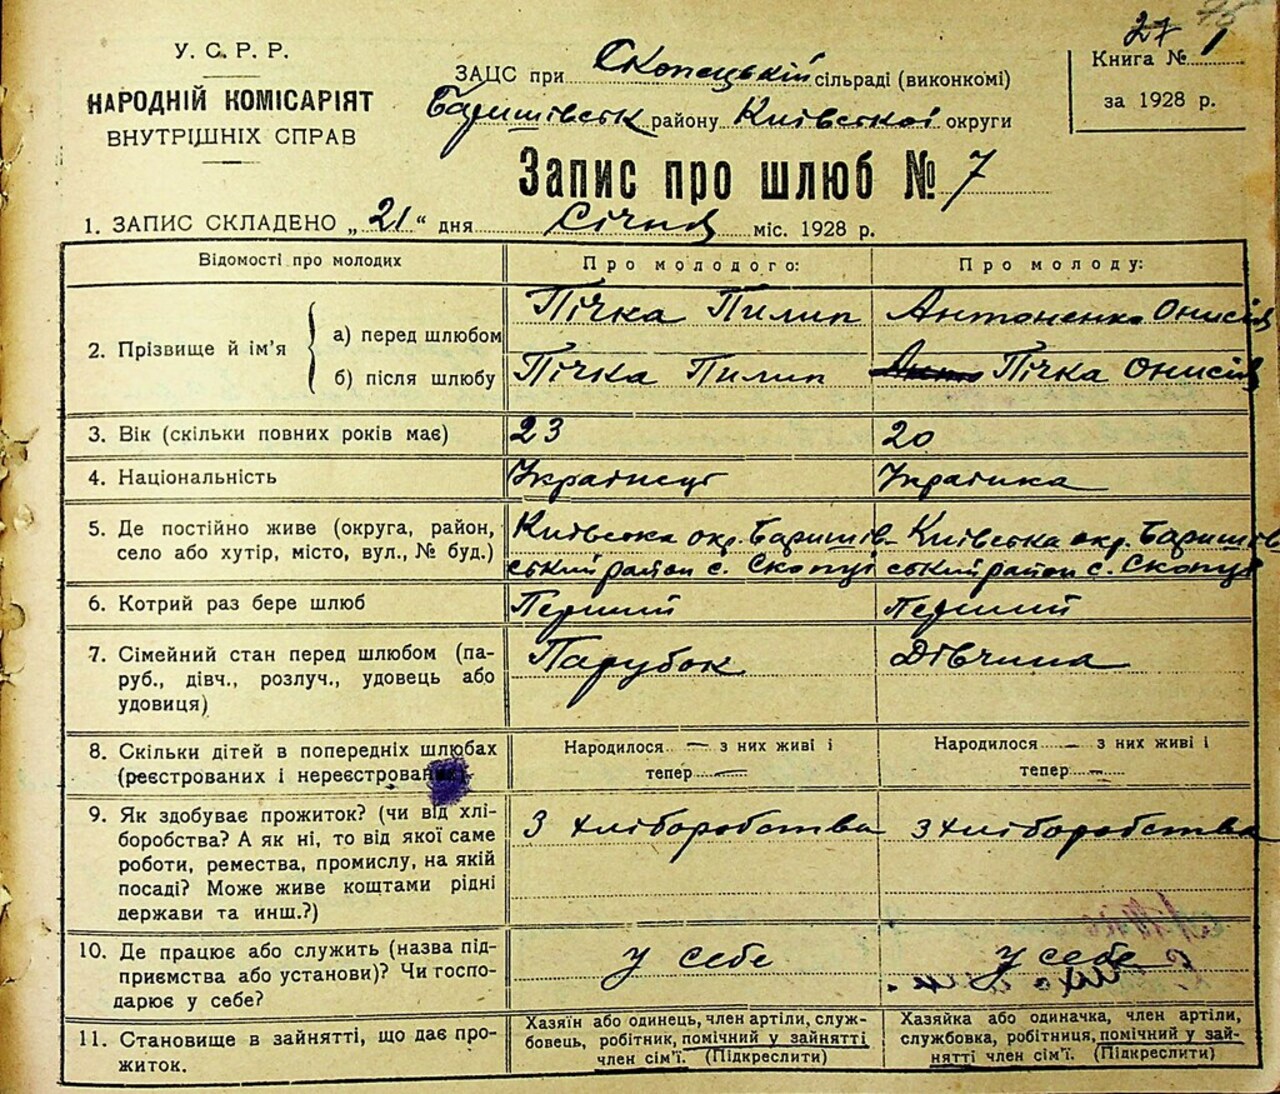 У. С. Р. Р.
НАРОДНІЙ КОМІСАРІЯТ
ВНУТРІШНІХ СПРАВ
ЗАЦС при Скопецькій сільраді (виконкомі)
Баришівськ району Київської округи
27
Книга № 1
за 1928 р.
Запис про шлюб № 7
1. ЗАПИС СКЛАДЕНО „21“ дня Січня міс. 1928 р.
Відомості про молодих
Про молодого:
Про молоду:
2. Прізвище й ім'я
а) перед шлюбом
Пічка Пилип
Антоненко Онисія
б) після шлюбу
Пічка Пилип
Пічка Онисія
3. Вік (скільки повних років має)
23
20
4. Національність
Українець
Українка
5. Де постійно живе (округа, район,
село або хутір, місто, вул., № буд.)
Київська окр. Баришів-
ський район с. Скопці
Київська окр. Баришів
ський район с. Скопці
6. Котрий раз бере шлюб
Перший
Перший
7. Сімейний стан перед шлюбом (па-
руб., дівч., розлуч., удовець або
удовиця)
Парубок
Дівчина
8. Скільки дітей в попередніх шлюбах
(реєстрованих і нереєстрован
Народилося — з них живі і
тепер —
Народилося — з них живі і
тепер —
9. Як здобуває прожиток? (чи від хлі-
боробства? А як ні, то від якої саме
роботи, ремества, промислу, на якій
посаді? Може живе коштами рідні
держави та инш.?)
З хліборобства
З хліборобства
10. Де працює або служить (назва під-
приємства або установи)? Чи госпо-
дарює у себе?
у себе
у себе
11. Становище в зайнятті, що дає про-
житок.
Хазяїн або одинець, член артіли, служ-
бовець, робітник, помічний у зайнятті
член сім'ї. (Підкреслити)
Хазяйка або одиначка, член артіли,
службовка, робітниця, помічний у зай-
нятті член сім'ї. (Підкреслити)